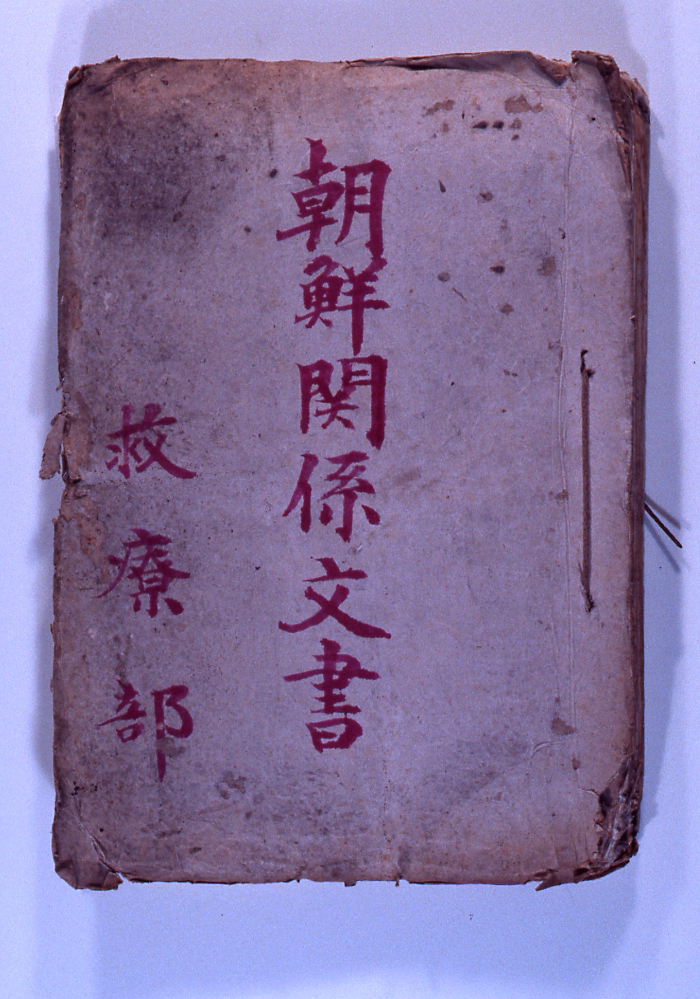 朝鮮関係文書
救療部